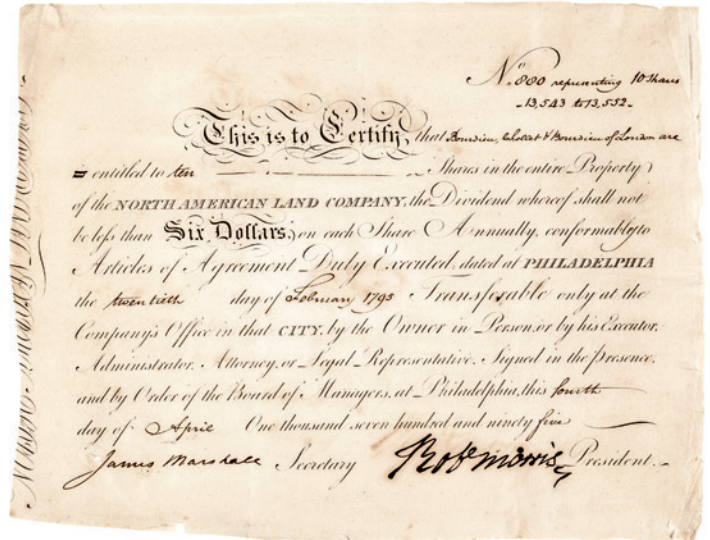 No. 880 representing 10 Shares
13,543 to 13,552
This is to Certify, that Bourdieu, Chollet & Bourdieu of London are
entitled to ten Shares in the entire Property
of the NORTH AMERICAN LAND COMPANY, the Dividend whereof shall not
be less than Six Dollars, on each Share Annually, conformably to
Articles of Agreement Duly Executed, dated at PHILADELPHIA
the twentieth day of February 1795 Transferable only at the
Company's Office in that CITY, by the Owner in Person, or by his Executor,
Administrator, Attorney, or Legal Representative. Signed in the presence,
and by Order of the Board of Managers, at Philadelphia, this fourth
day of April One thousand seven hundred and ninety five
James Marshall Secretary Robt Morris, President.